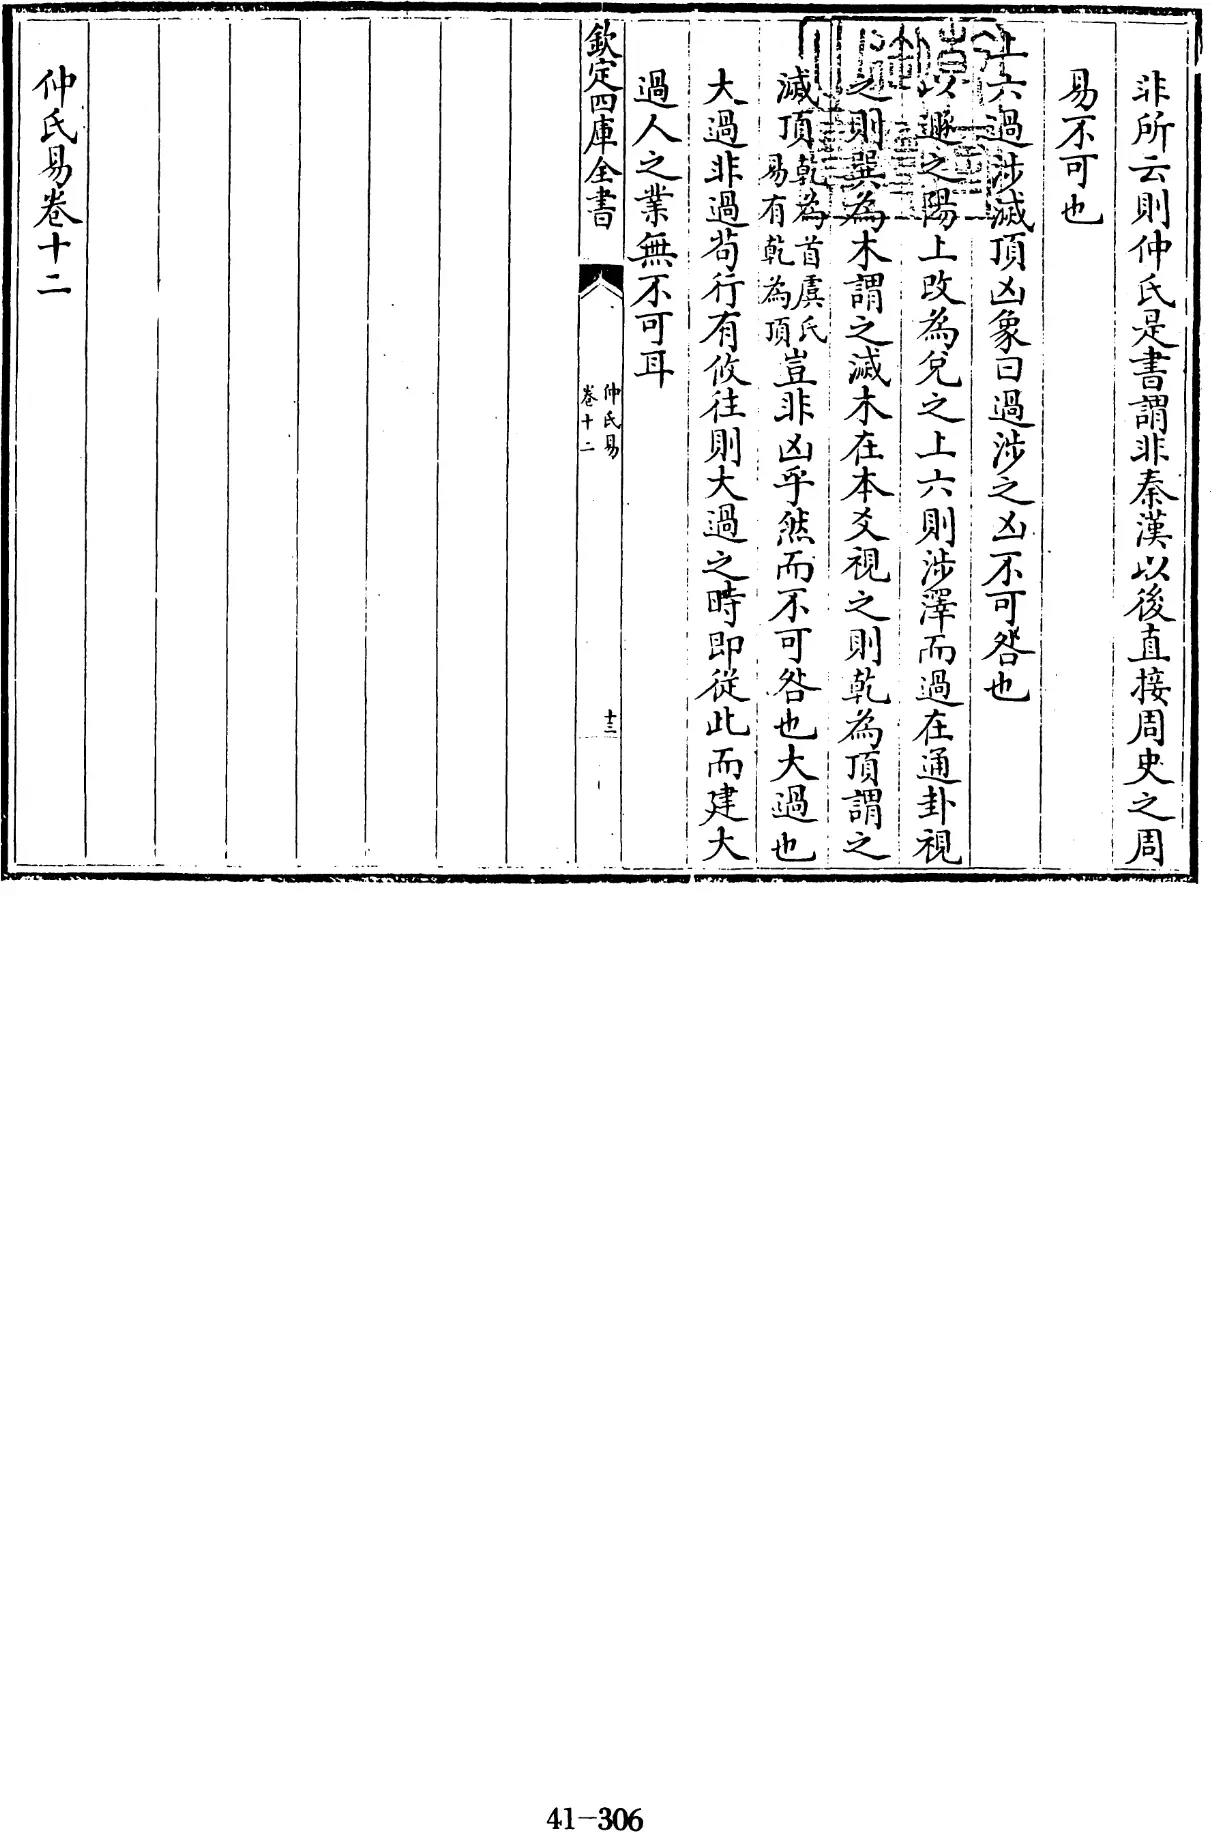 非所云則仲氏是書謂非秦漢以後直接周史之周
易不可也
上六過涉滅頂凶象曰過涉之凶不可咎也
以遯之陽上改為兌之上六則涉澤而過在通卦視
之則巽為木謂之滅木在本爻視之則乾為頂謂之
滅頂乾為首虞氏易有乾為頂豈非凶乎然而不可咎也大過也
大過非過苟行有攸往則大過之時即從此而建大
過人之業無不可耳
欽定四庫全書
仲氏易
卷十二
十三
仲氏易卷十二
41-306